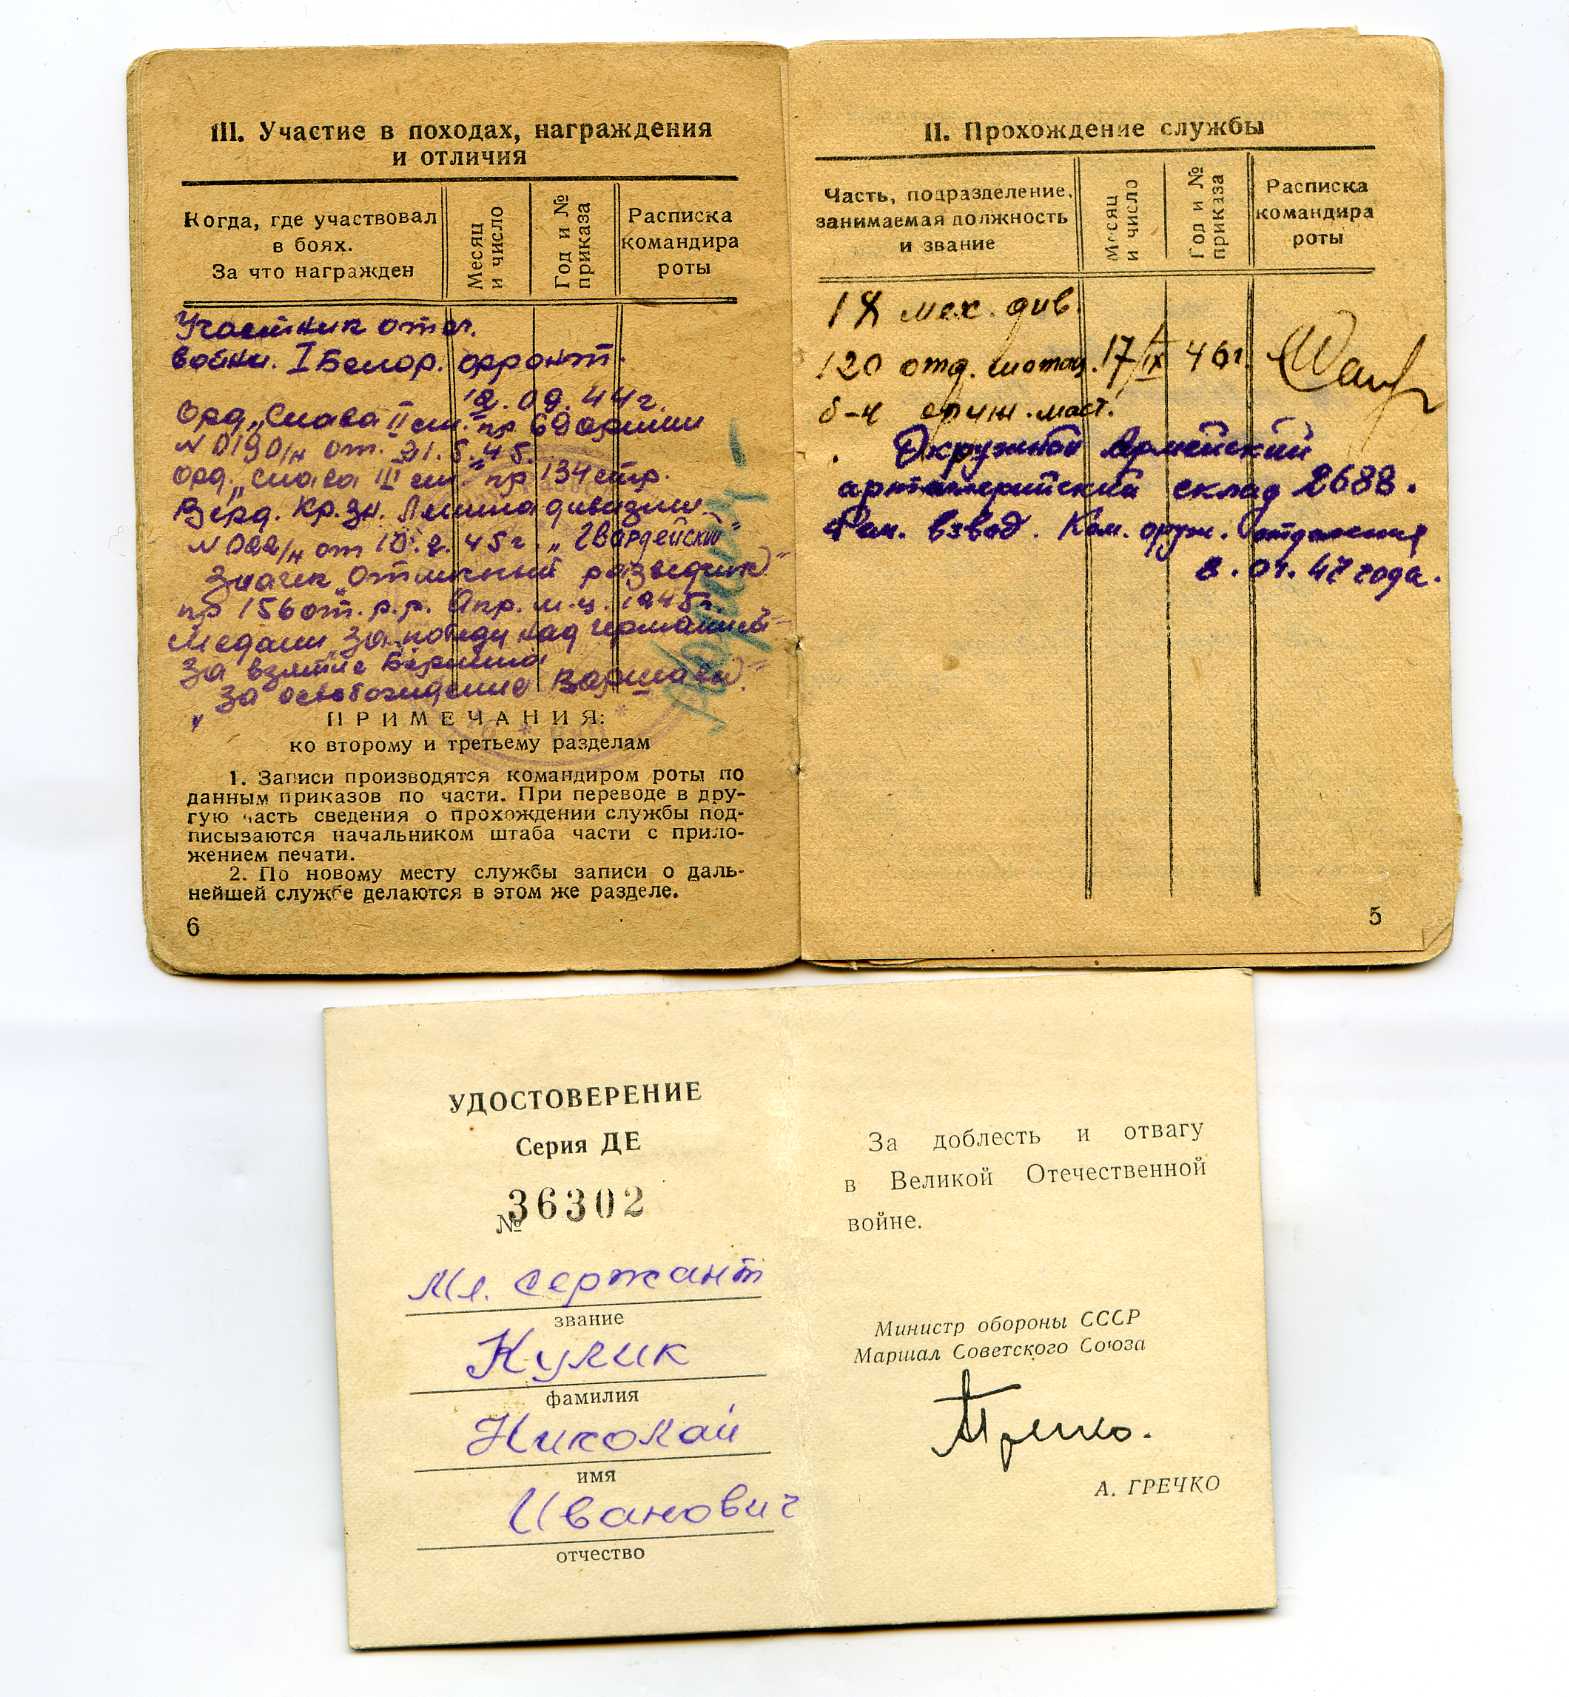 III. Участие в походах, награждения
и отличия
Когда, где участвовал
в боях.
За что награжден
Месяц
и число
Год и №
приказа
Расписка
командира
роты
Участник отеч.
войны. I Белор. фронт.
12.09.44г.
Орд. „Слава II ст." пр 69 армии
N 0190/н от. 21.5.45.
Орд. „Слава III ст" пр 134 стр.
Верд. Кр. Зн. дивизии.
N 022/н от 10.2.45г. „Гвардейский"
Значек „Отличный разведчик"
пр 156 от. р.р. Апр. м-ц. 1945г.
Медали „За победу над германией"
За взятие Берлина
„За освобождение Варшавы"
ПРИМЕЧАНИЯ:
ко второму и третьему разделам
1. Записи производятся командиром роты по
данным приказов по части. При переводе в дру-
гую часть сведения о прохождении службы под-
писываются начальником штаба части с прило-
жением печати.
2. По новому месту службы записи о даль-
нейшей службе делаются в этом же разделе.
6
II. Прохождение службы
Часть, подразделение,
занимаемая должность
и звание
Месяц
и число
Год и №
приказа
Расписка
командира
роты
18 мех. див.
120 отд. мотоц. 17/IX 46г.
б-н оруж. маст.
Окружной Армейский
артиллерийский склад 2688.
Рем. взвод. Ком. оруж. отделения
8.01.47 года.
5
УДОСТОВЕРЕНИЕ
Серия ДЕ
№ 36302
Мл. сержант
звание
Кулик
фамилия
Николай
имя
Иванович
отчество
За доблесть и отвагу
в Великой Отечественной
войне.
Министр обороны СССР
Маршал Советского Союза
Гречко.
А. ГРЕЧКО